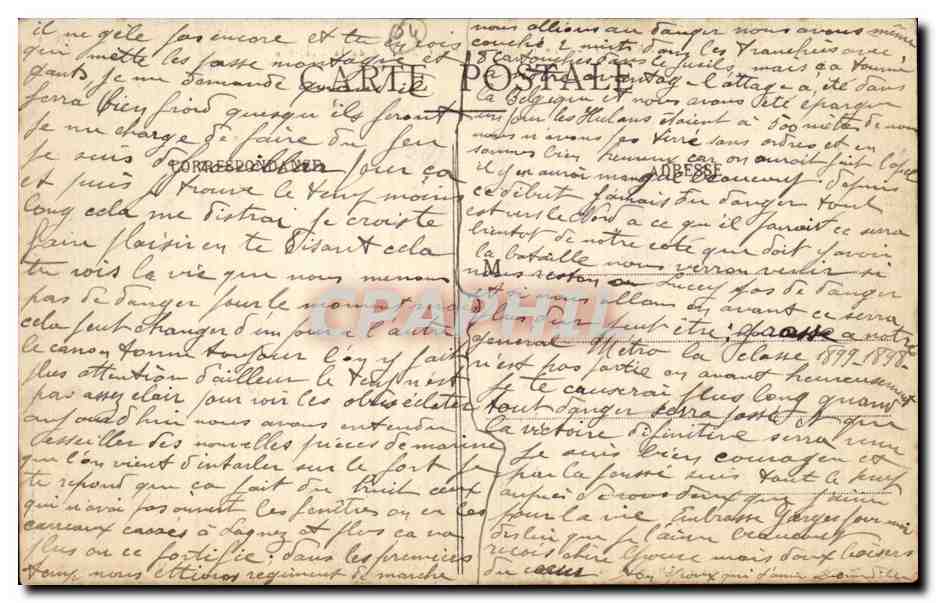 CARTE POSTALE
CORRESPONDANCE
ADRESSE
M
il ne gèle pas encore et tu crois
qui mette les passe montagne et
gants je me demande quand il
ferra bien froid quesqu'ils feront
je me charge de faire du feu
je suis pour ça
et puis je trouve le temp moins
long cela me distrai je croiste
faire plaisir en te disant cela
tu vois la vie que nous menons
pas de danger pour le moment
cela peut changer d'un jour a l'autre
le canon tonne toujour l'on y fait
plus attention d'ailleur le temp n'est
pas assez clair pour voir les obus éclater
aujourd'hui nous avons entendu
des nouvelles pièces de marine
que l'on vient d'intaler sur le fort je
te repond que ca fait du bruit ceux
qui n'avai pas ouvert les fenêtres on eu les
carreaux cassés à Lagney et plus ca va
plus on ce fortifie; dans les premiers
temp nous étions regiment de marche
nous allions au danger nous avons même
couché 2 nuits dans les tranchées avec
8 cartouches dans le fusil, mais ca a tourné
a notre avantage l'attaque a été dans
la Belgique et nous avons été épargné
un jour les Hulans étaient à 500 mètres de nous
nous n'avons pas tirré sans ordres et en
sommes bien heureux car on aurait fait
il y en aurai manqué beaucoup. depuis
ce début jamais du danger tout
est vers le Nord a ce qu'il parait ce serra
bientot de notre coté que doit y avoir
la bataille nous verron venir si
nous reston ou Lucey pas de danger
et si nous allons en avant ce serra
plus dur peut être; grasse a notre
general Métro la classe 1899-1898-
n'est pas partie en avant heureusement
je te causerai plus long quand
tout danger serra passé et que
la victoire difinitive serra venu
je suis bien courageu et
par la pensée suis tout le temp
auprès de vous deux que j'aime
pour la vie. Embrasse Georges pour moi
dis lui que je l'aime beaucoup
recois chere Epouse mais doux baisers
du coeur ton Epoux qui t'aime